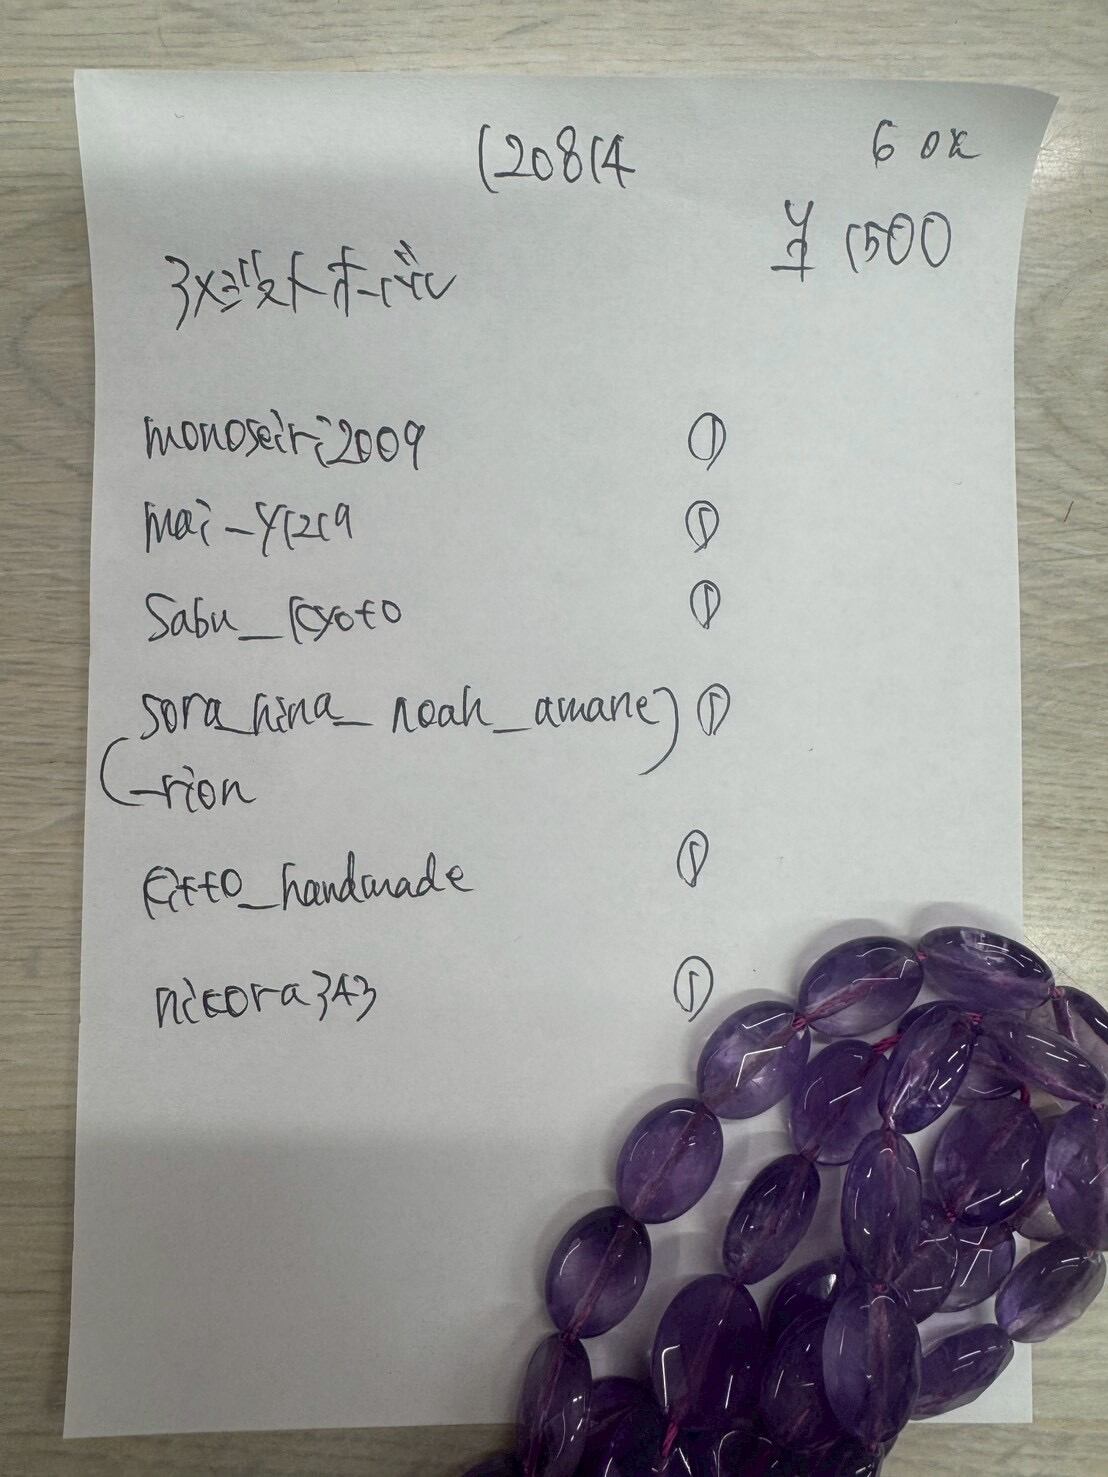 120814
6 ok
¥1500
monoseiri2009 ①
mai-y1219 ①
Sabu_kyoto ①
(sora_hina_noah_amane) ①
_rion
kitto_handmade ①
nicora343 ①